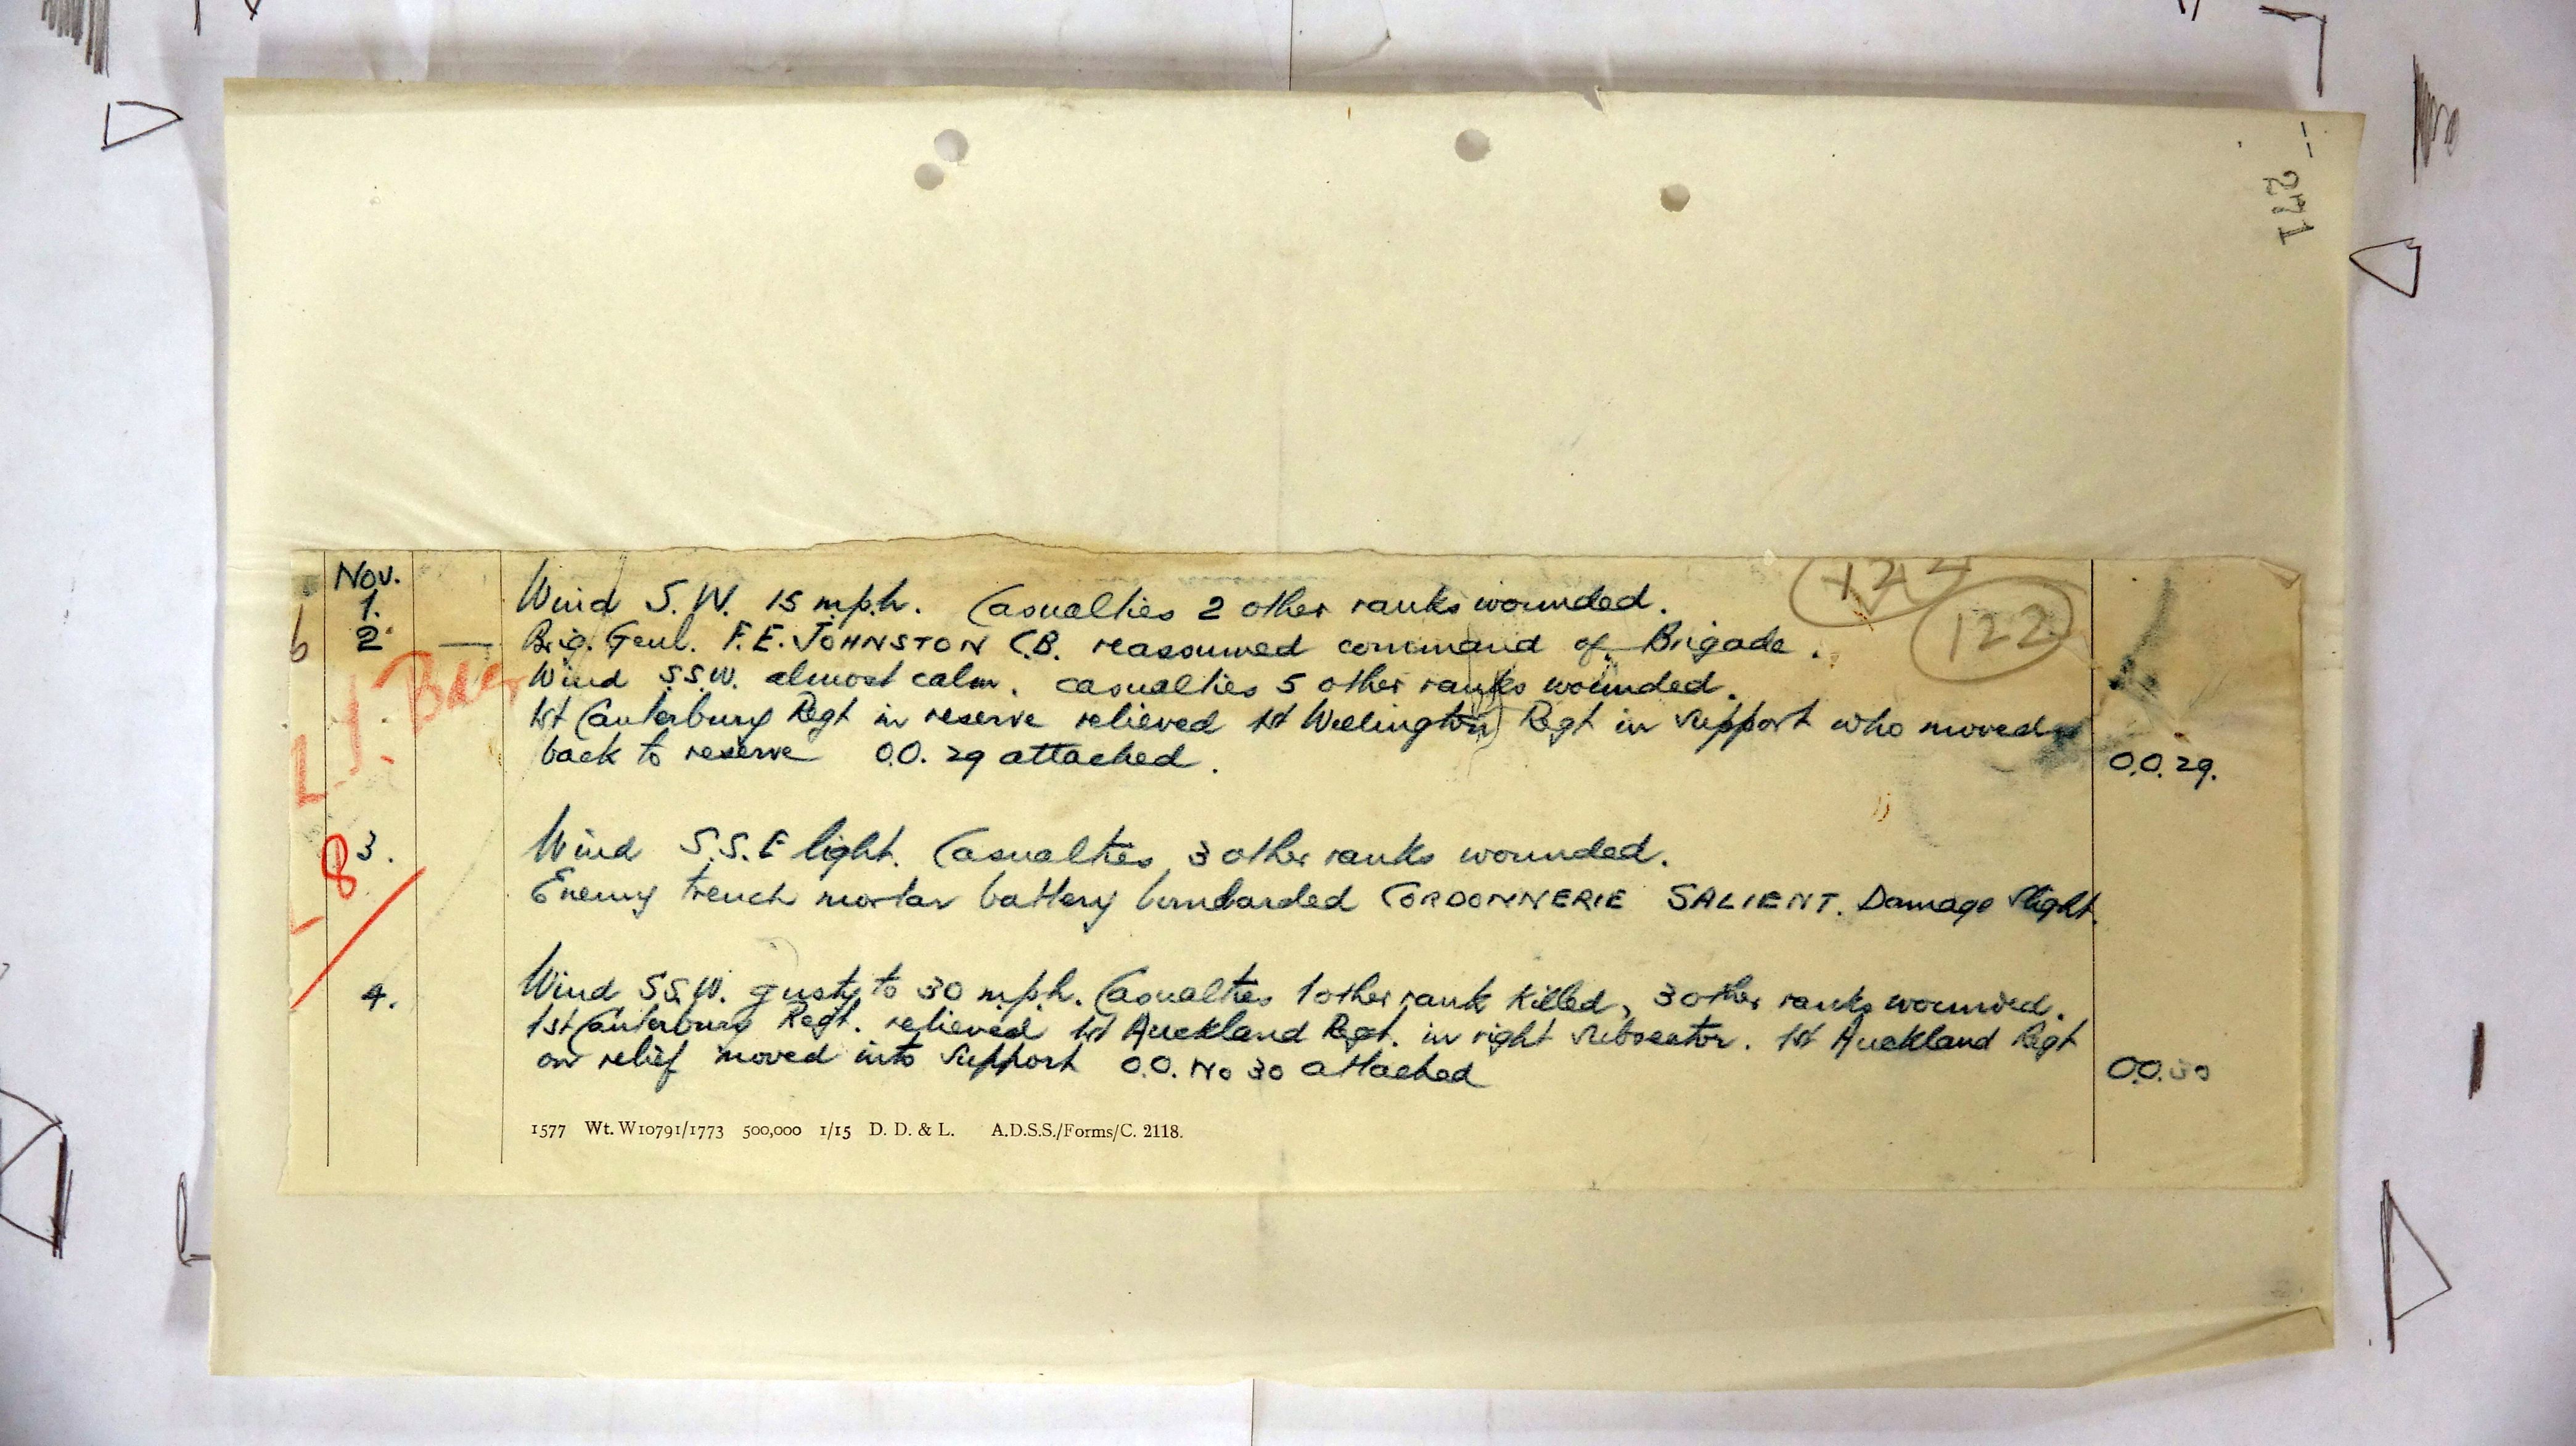 271
Nov.
122
1. Wind S.W. 15 m.p.h. Casualties 2 other ranks wounded.
122
2 — Brig. Genl. F.E. JOHNSTON C.B. reassumed command of Brigade.
Wind S.S.W. almost calm. casualties 5 other ranks wounded.
1st Canterbury Regt in reserve relieved 1st Wellington Regt in support who moved
back to reserve O.O. 29 attached. O.O. 29.
3. Wind S.S.E light. Casualties 3 other ranks wounded.
8
Enemy trench mortar battery bombarded CORDONNERIE SALIENT. Damage slight.
4. Wind S.S.W. gusty to 30 m.p.h. Casualties 1 other rank killed, 3 other ranks wounded.
1st Canterbury Regt. relieved 1st Auckland Regt. in right subsector. 1st Auckland Regt
on relief moved into support O.O. No 30 attached O.O. 30
1577 Wt. W10791/1773 500,000 1/15 D. D. & L. A.D.S.S./Forms/C. 2118.